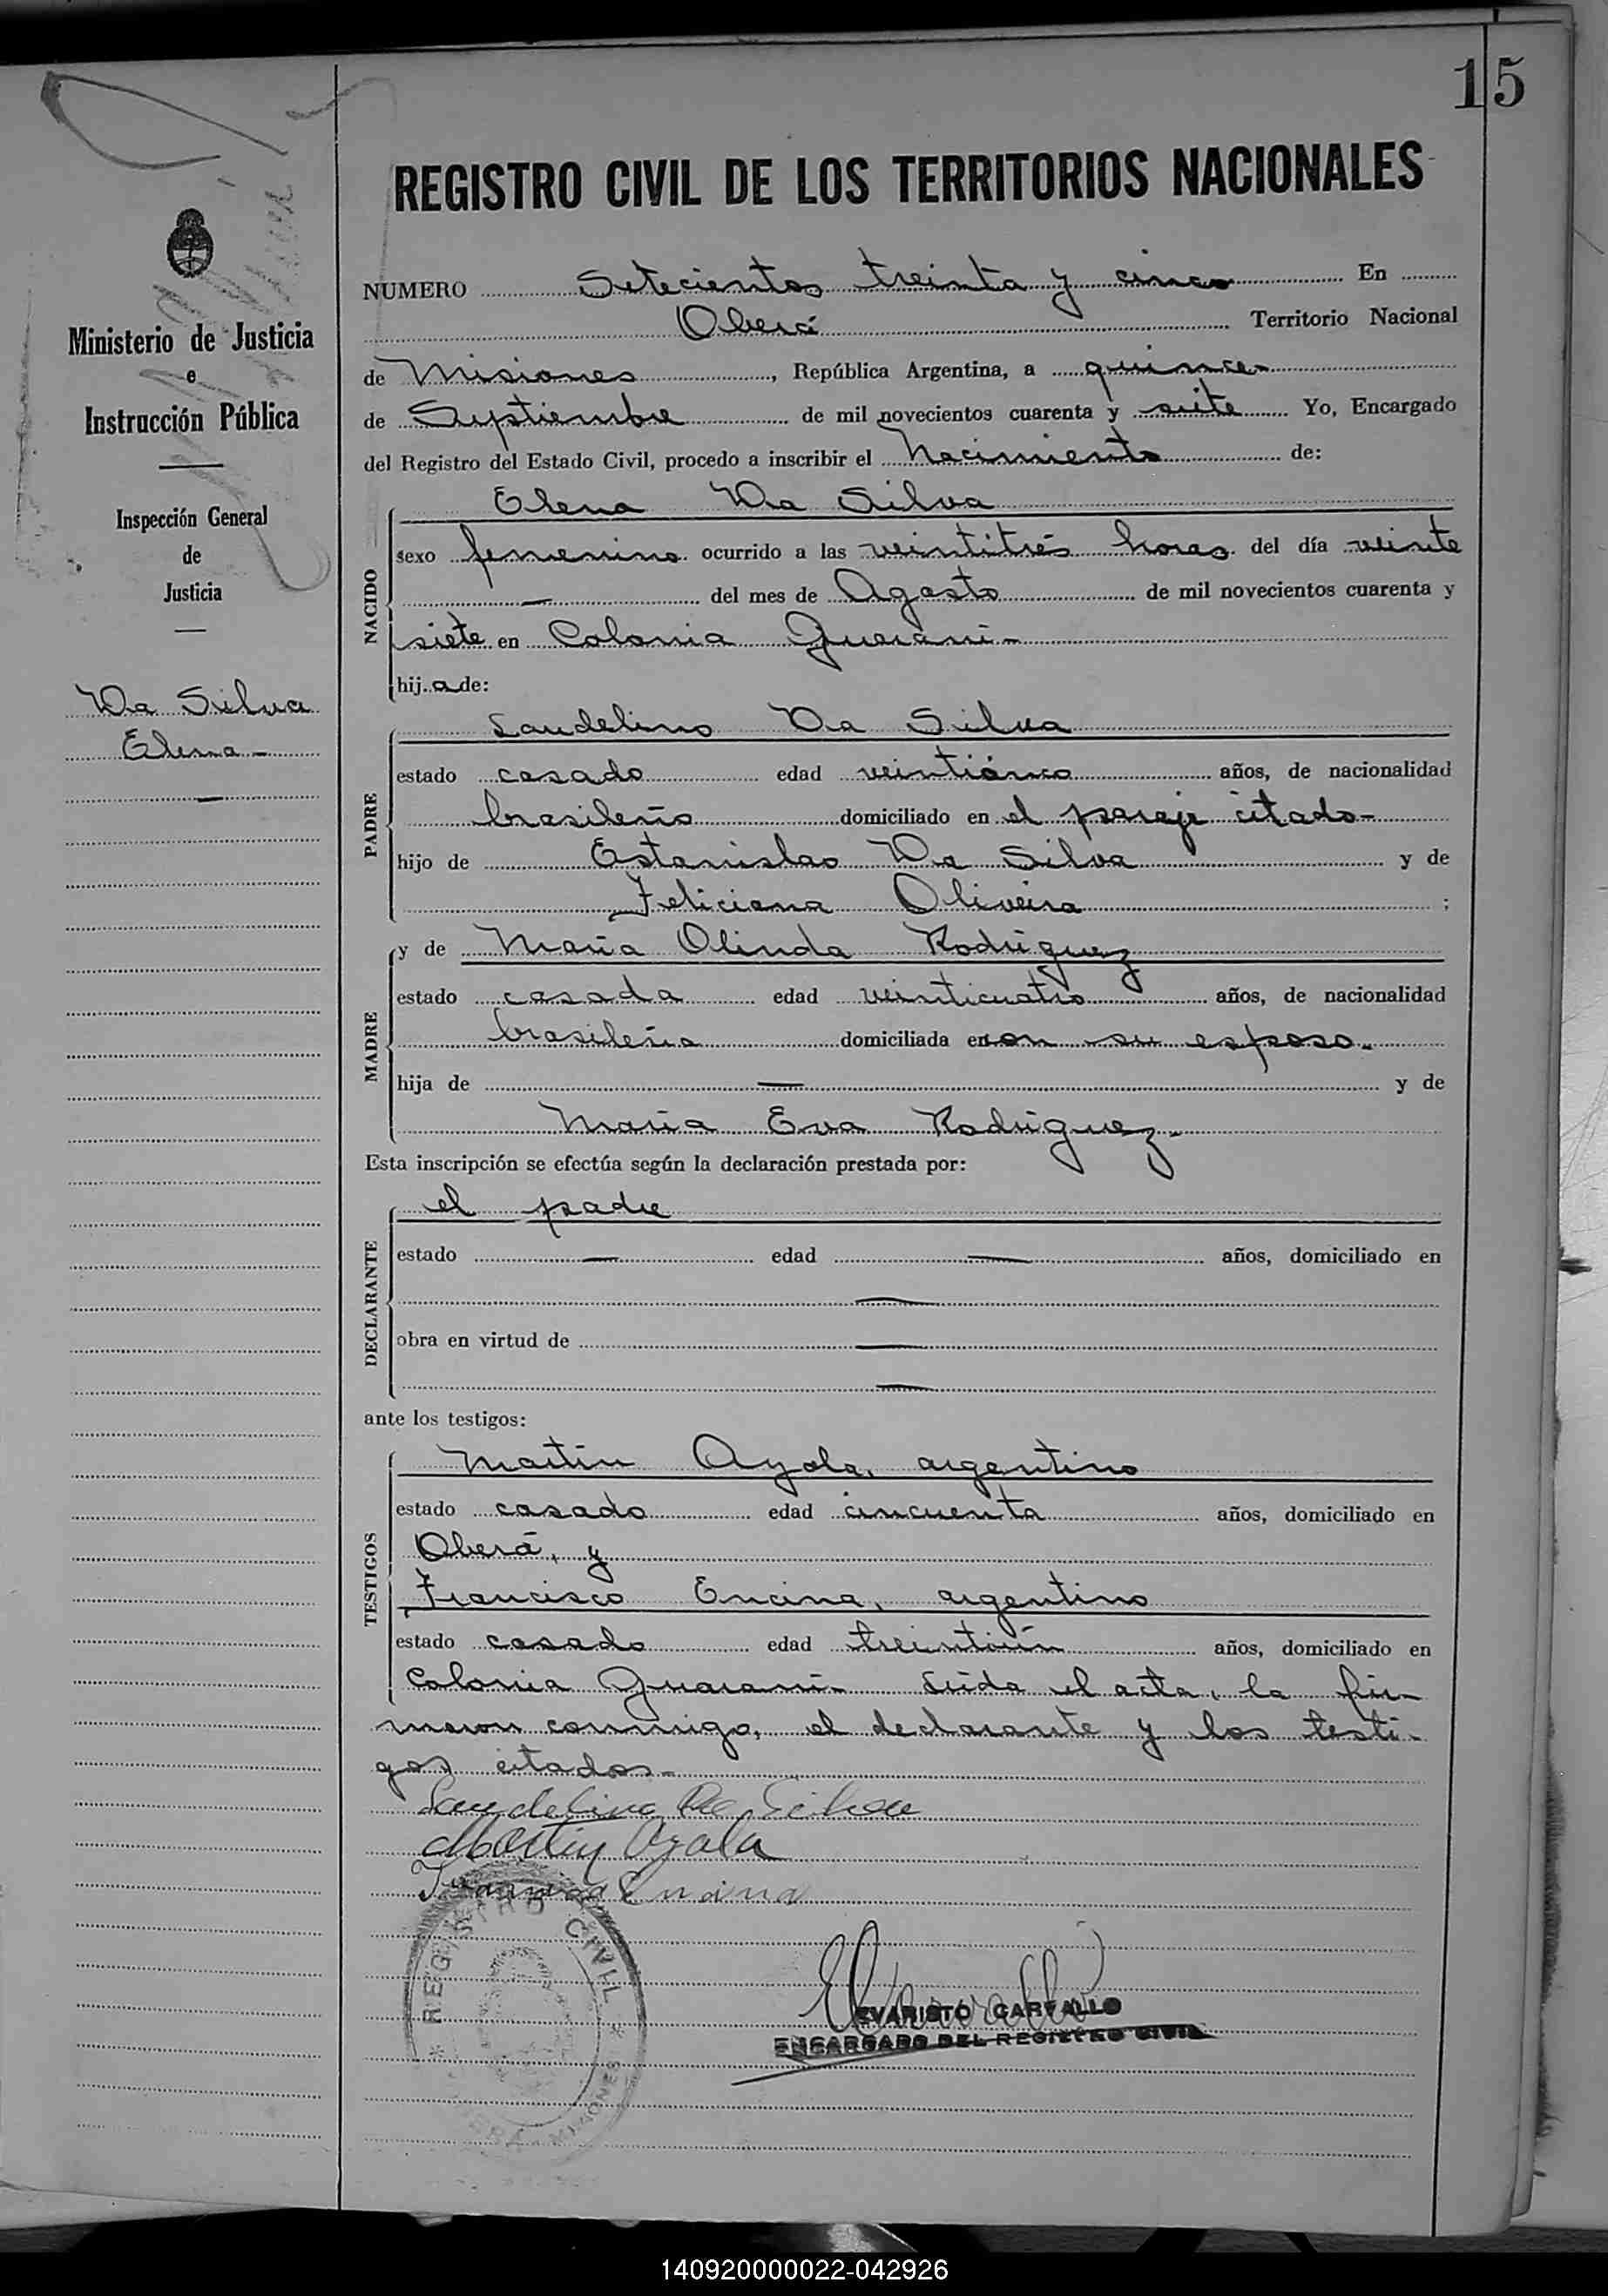 15
REGISTRO CIVIL DE LOS TERRITORIOS NACIONALES
Ministerio de Justicia
e
Instrucción Pública
Inspección General
de
Justicia
Da Silva
Elena -
NUMERO Setecientos treinta y cinco En
Oberá Territorio Nacional
de Misiones, República Argentina, a quince-
de Septiembre de mil novecientos cuarenta y siete Yo, Encargado
del Registro del Estado Civil, procedo a inscribir el Nacimiento de:
NACIDO
Elena Da Silva
sexo femenino ocurrido a las veintitrés horas del día veinte
— del mes de Agosto de mil novecientos cuarenta y
siete en Colonia Guaraní-
hij a de:
PADRE
Laudelino Da Silva
estado casado edad veinticinco años, de nacionalidad
brasileño domiciliado en el paraje citado-
hijo de Estanislao Da Silva y de
Feliciana Oliveira ;
MADRE
y de María Olinda Rodriguez
estado casada edad veinticuatro años, de nacionalidad
brasileña domiciliada en con su esposo.
hija de — y de
María Eva Rodriguez-
Esta inscripción se efectúa según la declaración prestada por:
DECLARANTE
el padre
estado — edad — años, domiciliado en
—
obra en virtud de —
—
ante los testigos:
TESTIGOS
Martin Ayala, argentino
estado casado edad cincuenta años, domiciliado en
Oberá, y
Francisco Encina, argentino
estado casado edad treintiún años, domiciliado en
Colonia Guaraní- Leida el acta, la fir-
maron conmigo, el declarante y los testi-
gos citados-
Laudelino Da Silva
Martin Ayala
Francisco Encina
REGISTRO CIVIL
OBERA - MISIONES
EVARISTO CARVALLO
ENCARGADO DEL REGISTRO CIVIL
140920000022-042926